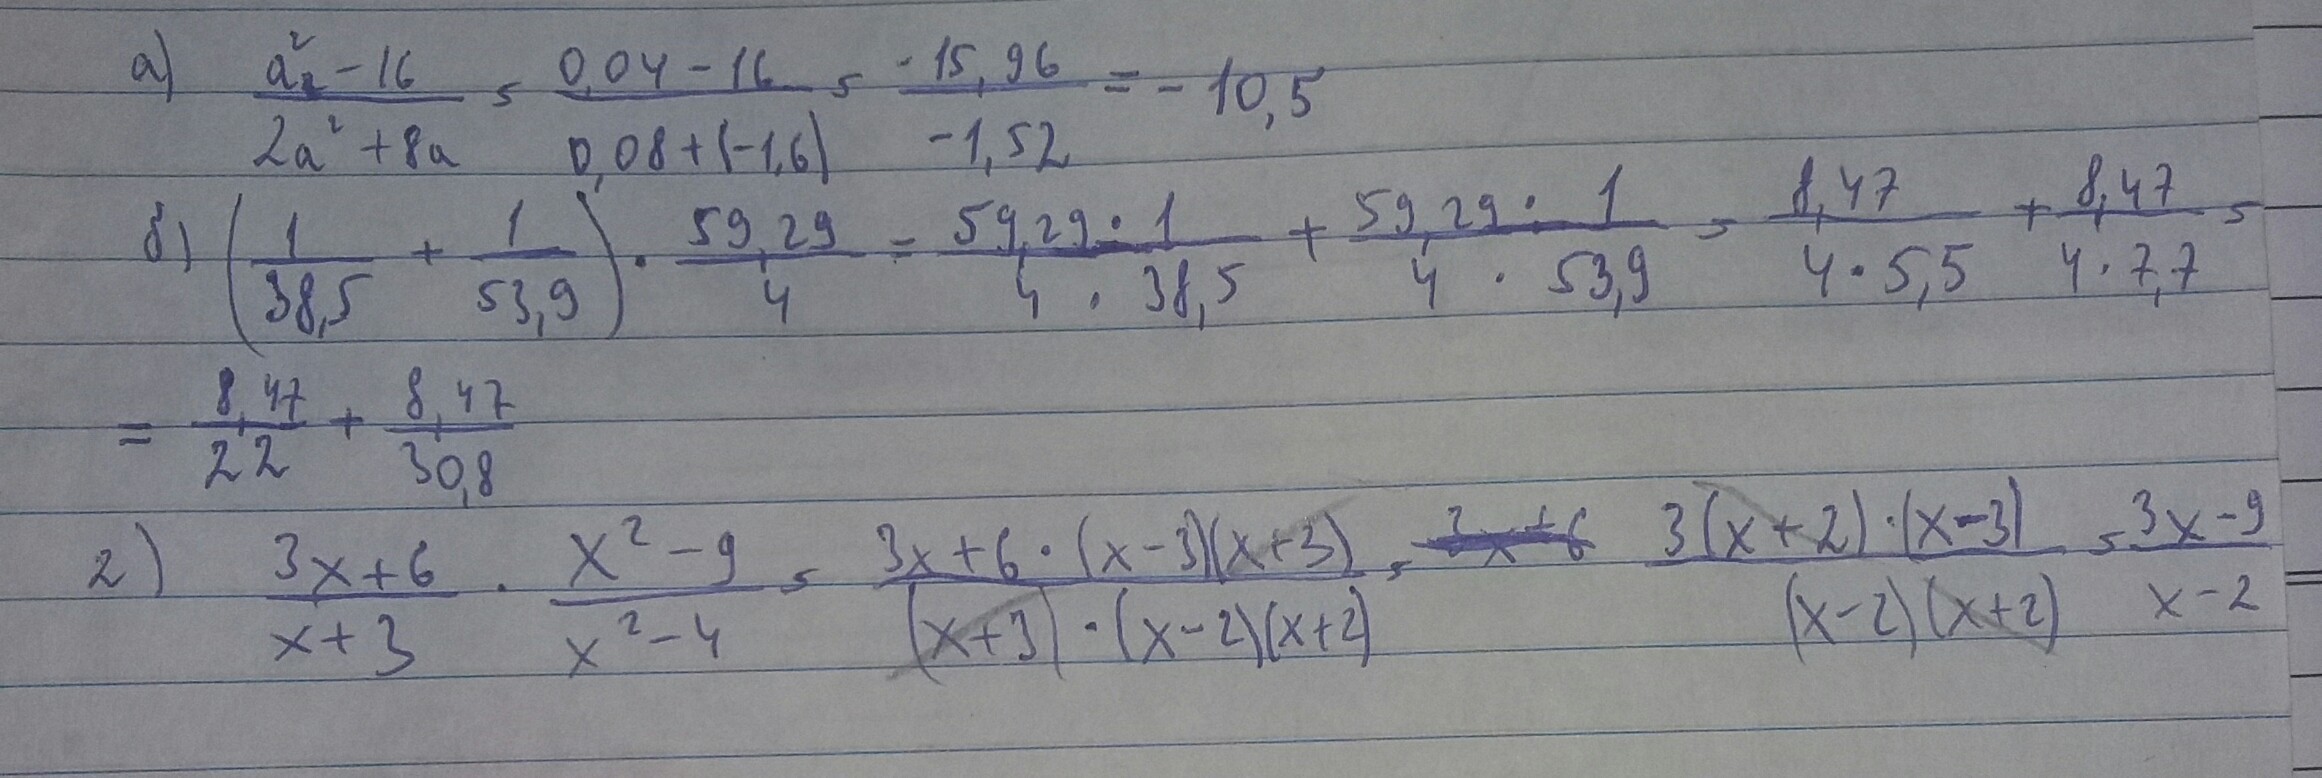 а) (a² - 16)/(2a² + 8a) = (0,04 - 16)/(0,08 + (-1,6)) = (-15,96)/(-1,52) = - 10,5
б) (1/38,5 + 1/53,9) · 59,29/4 = (59,29 · 1)/(4 · 38,5) + (59,29 · 1)/(4 · 53,9) = 8,47/(4 · 5,5) + 8,47/(4 · 7,7) =
= 8,47/22 + 8,47/30,8
2) (3x + 6)/(x + 3) · (x² - 9)/(x² - 4) = (3x + 6 · (x - 3)(x + 3))/((x + 3) · (x - 2)(x + 2)) = 3x + 6 (3(x + 2) · (x - 3))/((x - 2)(x + 2)) = (3x - 9)/(x - 2)